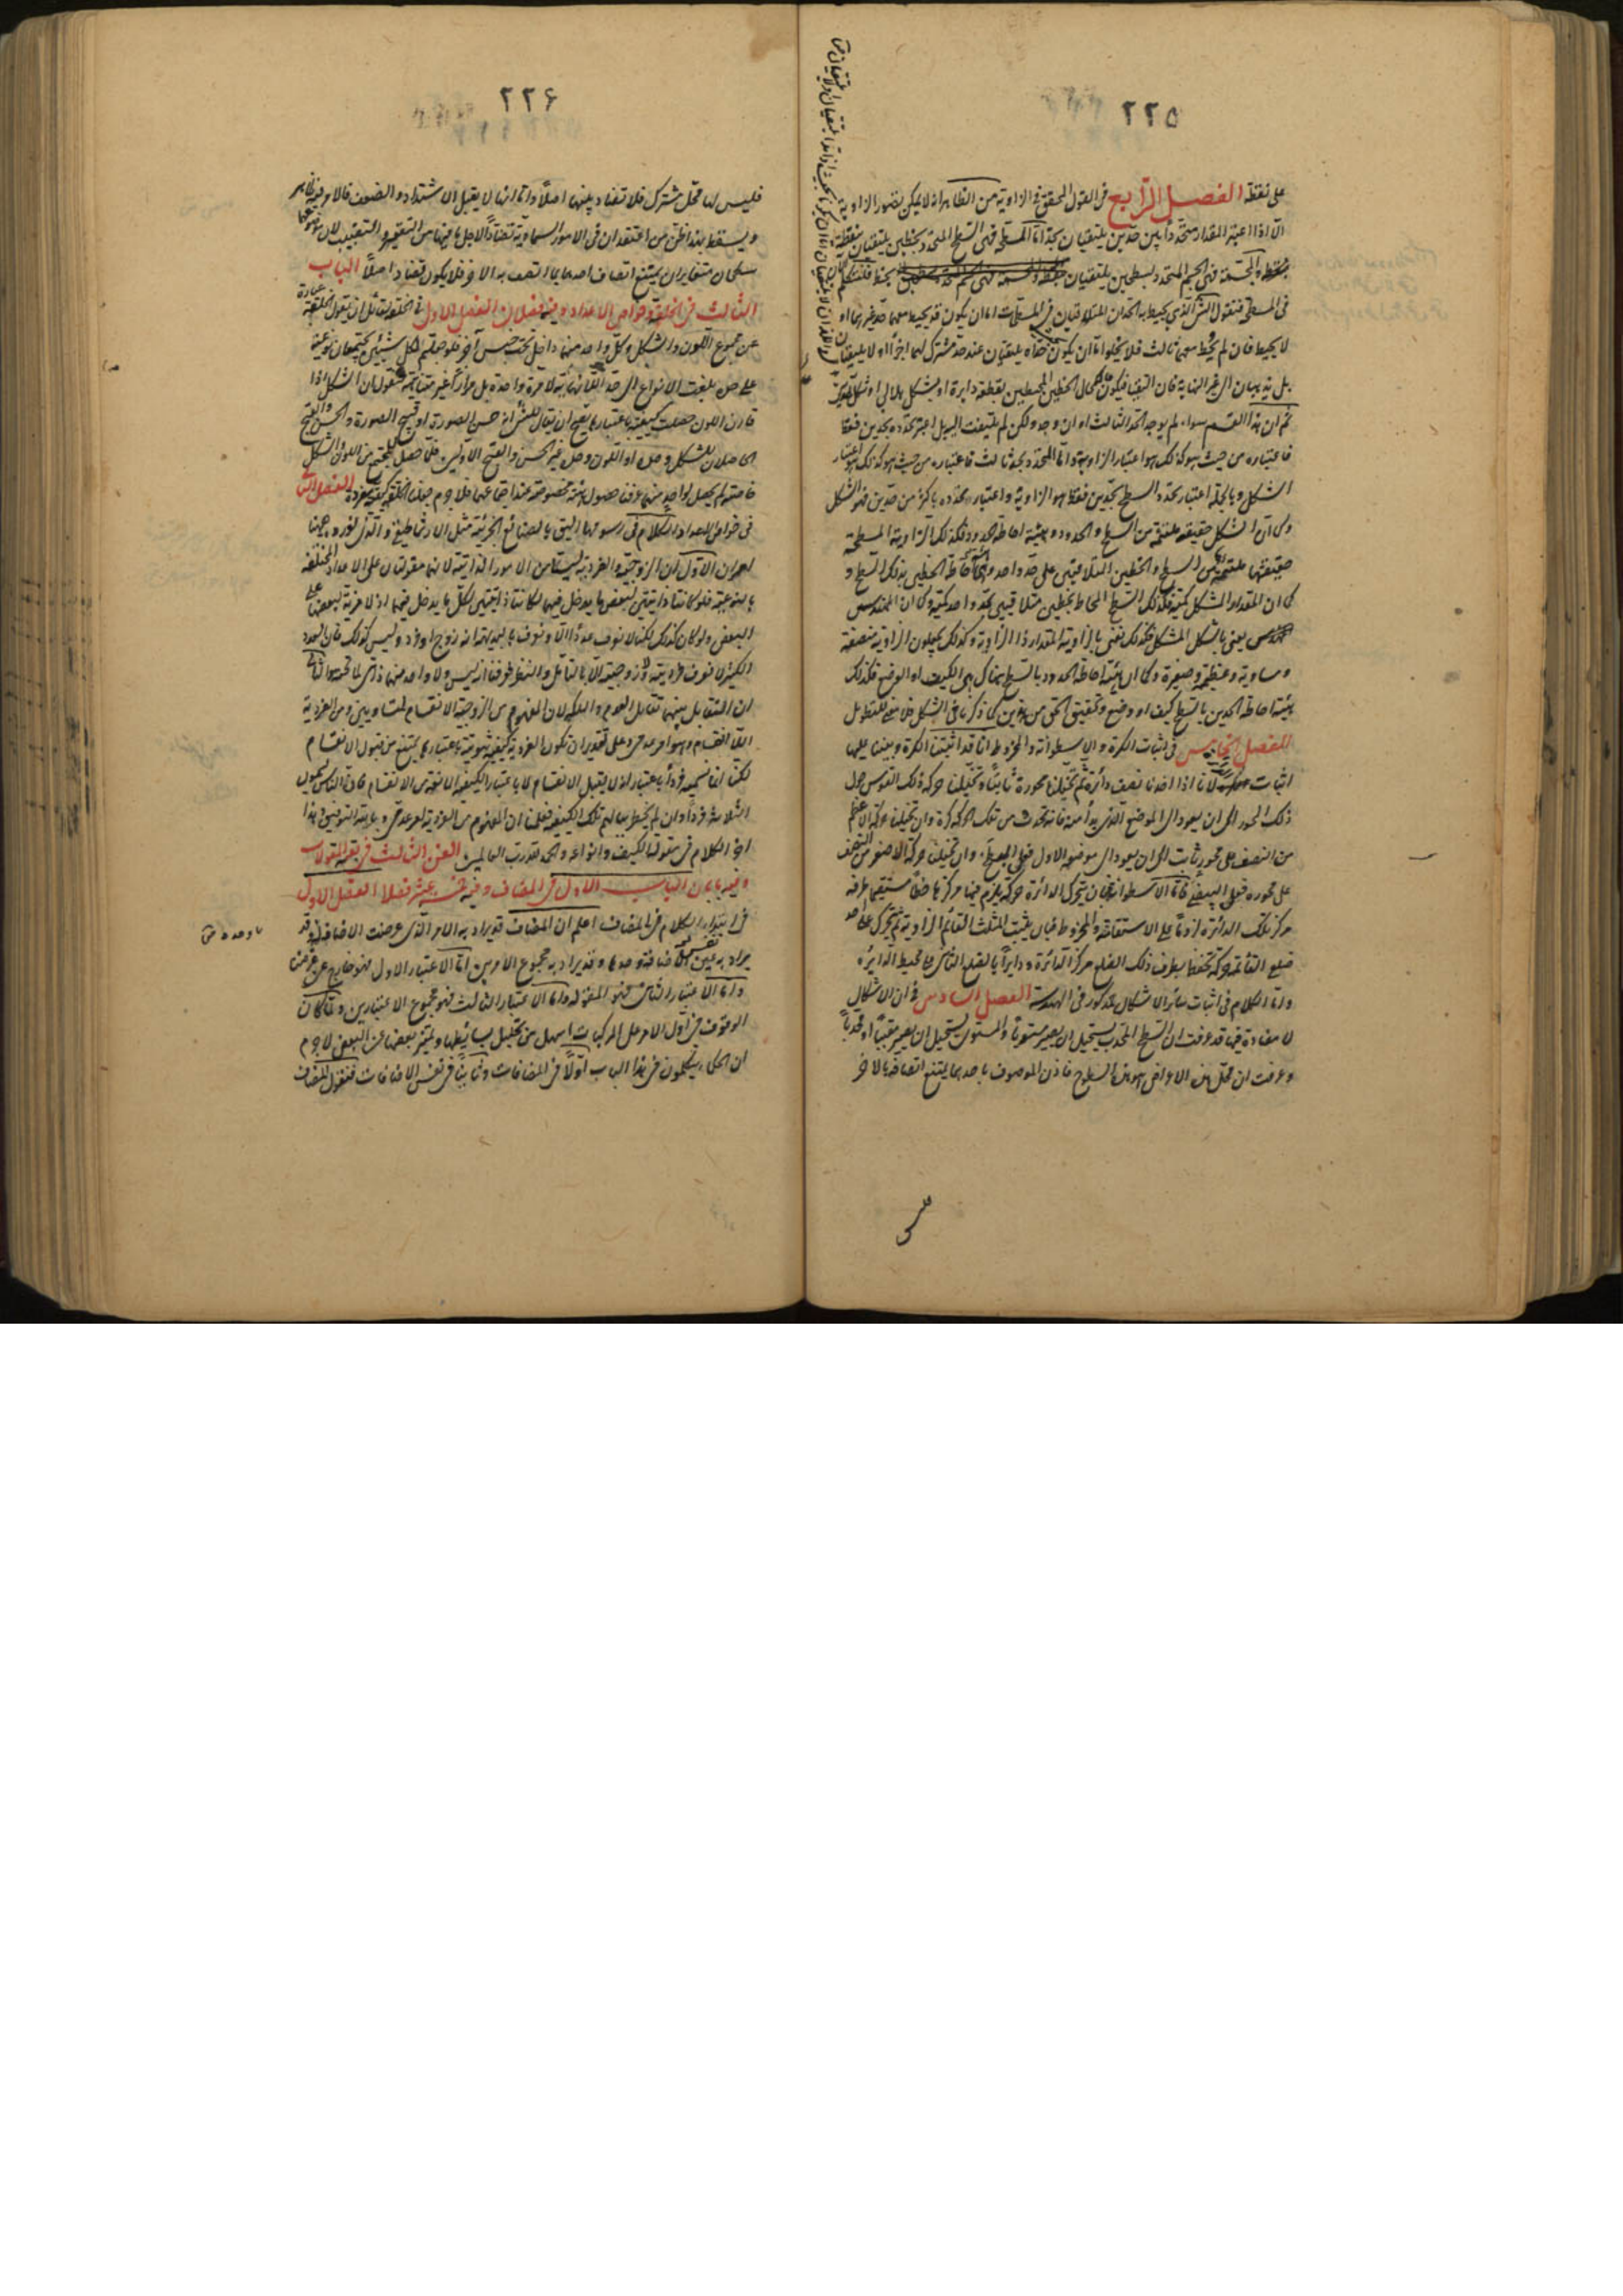 ٢٢٥
على نقطة الفصل الرابع فى القول المحقق فى الزاوية من الظاهر انه لا يمكن تصور الزاوية
الا اذا اعتبر المقدار متحددا بين حدين يلتقيان بحد اما المسطحة فهى السطح المتحدد بخطين يلتقيان بنقطة
والمجسمة فهى الجسم المتحدد بسطحين يلتقيان بخط فلنتكلم
فى المسطحة فنقول الشئ الذى يحيط به الحدان المتلاقيان فى المسطحات اما ان يكون قد يحيط معهما حد غيرهما او
لا يحيط فان لم يحط معهما ثالث فلا يخلو اما ان يكون حداه يلتقيان عند حد مشترك لهما اخر او لا يلتقيان
بل يذهبان الى غير النهاية فان التقيا فيكون كحال الخطين المحيطين بقطعة دايرة او بشكل هلالى او شكل
ثم ان هذا القسم سواء لم يوجد الحد الثالث او ان وجد ولكن لم يلتفت اليه بل اعتبر تحدده بحدين فقط
فاعتباره من حيث هو كذلك هو اعتبار الزاوية واما المتحدد بحد ثالث فاعتباره من حيث هو كذلك هو اعتبار
الشكل وبالجملة اعتبار تحدد السطح بحدين فقط هو الزاوية واعتبار تحدده باكثر من حدين فهو الشكل
وكما ان الشكل حقيقة ملتئمة من السطح والحدود وهيئة احاطة الحدود فكذلك الزاوية المسطحة
حقيقتها ملتئمة من السطح والخطين المتلاقيين على حد واحد وهيئة احاطة الخطين بذلك السطح و
كما ان المقدار المشكل كمية فكذلك السطح المحاط بخطين متلاقيين بحد واحد كمية وكما ان المهندس
يعنى بالشكل المشكل فكذلك نعنى بالزاوية المقدار ذا الزاوية وكذلك يجعلون الزاوية منصفة
ومساوية وعظيمة وصغيرة وكما ان هيئة احاطة الحدود بالسطح هناك هى الكيف او الوضع فكذلك
هيئة احاطة الحدين بالسطح كيف او وضع وتحقيق الحق من هذين كما ذكرنا فى الشكل فلا معنى للتطويل
الفصل الخامس فى اثبات الكرة والاسطوانة والمخروط انا قد اثبتنا الكرة وبينا عليها
اثبات لانا اذا اخذنا نصف دائرة ثم تخيلنا محوره ثابتا وتخيلنا حركة ذلك القوس حول
ذلك المحور الى ان يعود الى الموضع الذى بدأ منه فانه تحدث من تلك الحركة كرة وان تخيلنا حركة الاعظم
من النصف على محور ثابت الى ان يعود الى موضعه الاول فعلى وان تخيلنا حركة الاصغر من النصف
على محوره فعلى البيضى فاما الاسطوانة فبان يتحرك الدائرة حركة يلزم فيها مركزها خطا مستقيما طرفه
مركز تلك الدائرة لزوما على الاستقامة والمخروط فبان يثبت المثلث القائم الزاوية ثم يتحرك على احد
ضلعى القائمة حركة تحفظ بطرف ذلك الضلع مركز الدائرة ودايرا بالضلع الثانى على محيط الدايرة
واما الكلام فى اثبات سائر الاشكال مذكور فى الهندسة الفصل السادس فى ان الاشكال
لا مضادة فيها قد عرفت ان السطح المحدب يستحيل ان يصير مستويا والمستوى يستحيل ان يصير مقببا او محدبا
وعرفت ان محل هذه الاعراض هو هذه السطوح فاذن الموصوف باحدهما يمتنع اتصافه بالاخر
٢٢۶
فليس لها محل مشترك فلا تضاد بينهما اصلا واما انها لا يقبل الاشتداد والضعف فالامر فيه ظاهر
ويسقط بهذا ظن من اعتقد ان فى الامور السماوية تضادا لاجل ما فيها من التقعير والتقبيب لان موضوعهما
سطحان متغايران يمتنع اتصاف احدهما بما اتصف به الاخر فلا يكون تضاد اصلا الباب
الثالث فى الخلقة وخواص الاعداد وفيه فصلان الفصل الاول فى الخلقة لقائل ان يقول الخلقة عبارة
عن مجموع اللون والشكل وكل واحد منهما داخل تحت جنس آخر فلو جعلتم لكل شيئين يجتمعان نوعية
على حدة بلغت الانواع الى حد اللانهاية لا مرة واحدة بل مرارا غير متناهية فنقول ان الشكل اذا
قارن اللون حصلت كيفية باعتبارها يصح ان يقال للشئ انه حسن الصورة او قبيح الصورة والحسن والقبح
الحاصلان للشكل وحده او اللون وحده غير الحسن والقبح الاولين فلما حصل للمجتمع من اللون والشكل
خاصة لم يحصل لواحد منهما عرفنا حصول هيئة مخصوصة عند اجتماعهما فلا جرم جعلنا الخلقة كيفية مفردة الفصل الثانى
فى خواص الاعداد والكلام فى رسومها اليق بالصنائع الجزئية مثل الارثماطيقى والذى نورده ههنا
امران الاول ان الزوجية والفردية ليستا من الامور الذاتية لانهما مقولتان على الاعداد المختلفة
بالنوعية فلو كانتا ذاتيتين لبعض ما يدخل فيهما لكانتا ذاتيتين لكل ما يدخل فيهما اذ لا مزية لبعضها على
البعض ولو كان كذلك لكنا لا نعرف عددا الا ونعرف بالبديهة انه زوج او فرد وليس كذلك فان العدد
الكثير لا نعرف فرديته وزوجيته الا بالتأمل والنظر فعرفنا انه ليس ولا واحد منهما ذاتى لما تحته الثانى
ان التقابل بينهما تقابل العدم والملكة لان المفهوم من الزوجية الانقسام لمتساويين ومن الفردية
اللاانقسام وهو امر عدمى وعلى تقدير ان تكون الفردية كيفية ثبوتية باعتبارها يمتنع من قبول الانقسام
لكنا انما نسميه فردا باعتبار انه لا يقبل الانقسام لا باعتبار الكيفية المانعة من الانقسام فان الناس يسمون
الثلاثة فردا وان لم يخطر ببالهم تلك الكيفية فعلمنا ان المفهوم من الفردية امر عدمى وبالله التوفيق وهذا
اخر الكلام فى مقولة الكيف وانواعه والحمد لله رب العالمين الفن الثالث فى بقية المقولات
وفيه بابان الباب الاول فى المضاف وفيه خمسة عشر فصلا الفصل الاول
فى ابتداء الكلام فى المضاف اعلم ان المضاف قد يراد به الامر الذى عرضت الاضافة له وقد
يراد به نفس الاضافة وحدها وقد يراد به مجموع الامرين اما الاعتبار الاول فهو خارج عن غرضنا
واما الاعتبار الثانى فهو المقولة واما الاعتبار الثالث فهو مجموع الاعتبارين ولما كان
الوقوف فى اول الامر على المركبات اسهل من تحليل بسائطها وتمييز بعضها عن البعض لا جرم
ان الحكماء يتكلمون فى هذا الباب اولا فى المضافات وثانيا فى نفس الاضافات فنقول المضاف